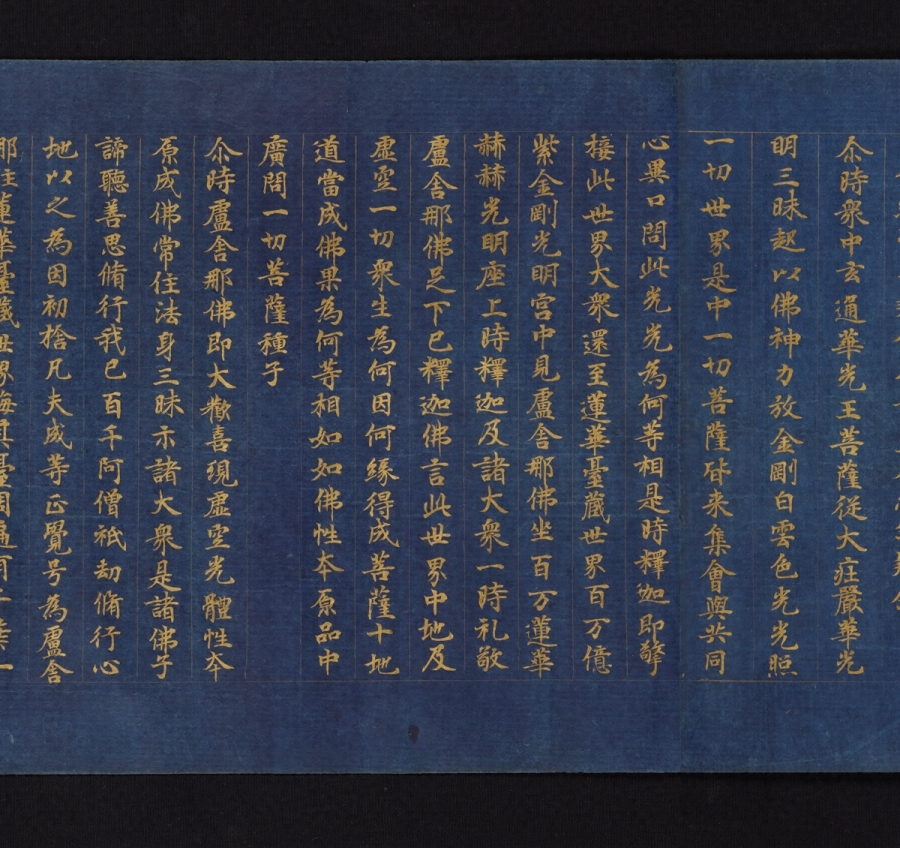 尒時衆中玄通華光王菩薩從大庄嚴華光
明三昧起以佛神力放金剛白雲色光光照
一切世界是中一切菩薩皆来集會與共同
心異口問此光光為何等相是時釋迦即擎
接此世界大衆還至蓮華臺蔵世界百万億
紫金剛光明宫中見盧舍那佛坐百万蓮華
赫赫光明座上時釋迦及諸大衆一時礼敬
盧舍那佛足下已釋迦佛言此世界中地及
虚空一切衆生為何因何緣得成菩薩十地
道當成佛果為何等相如如佛性夲原品中
廣問一切菩薩種子
尒時盧舍那佛即大歡喜現虚空光體性夲
原成佛常住法身三昧示諸大衆是諸佛子
諦聽善思脩行我已百千阿僧祇劫脩行心
地以之為因初捨凡夫成等正覺号為盧舍